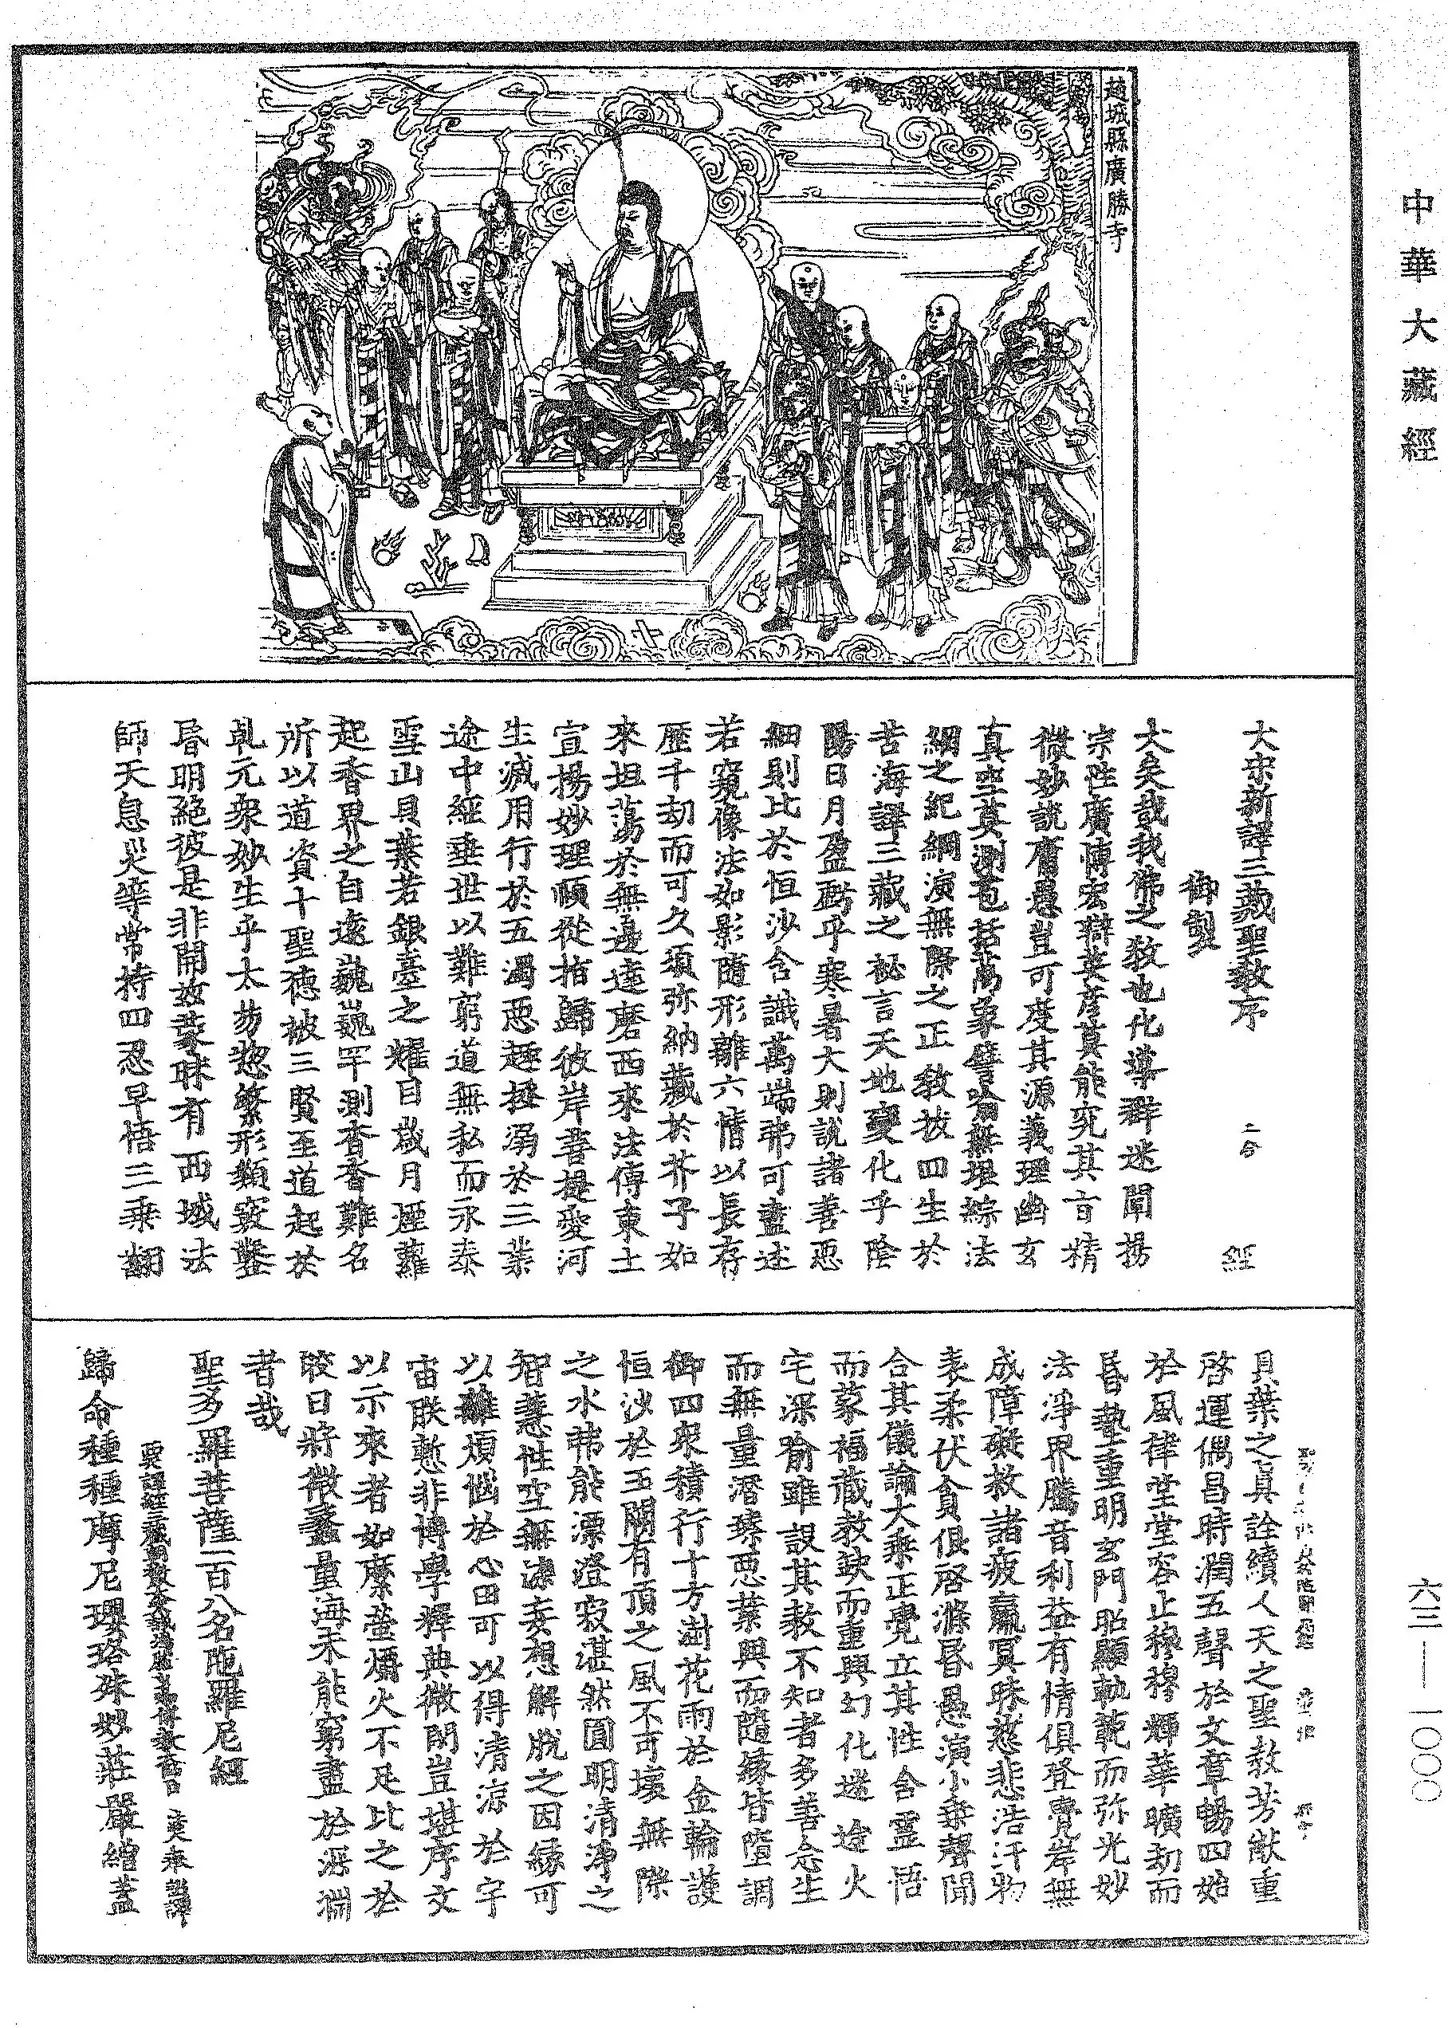 中華大藏經
趙城縣廣勝寺
大宋新譯三藏聖教序 經
御製
大矣哉我佛之教也化導群迷闡揚
宗性廣博宏辯英彥莫能究其旨精
微妙說庸愚豈可度其源義理幽玄
真空莫測苞括萬象譬喻無垠綜法
綱之紀綱演無際之正教拔四生於
苦海譯三藏之祕言天地變化乎陰
陽日月盈虧乎寒暑大則說諸善惡
細則比於恒沙含識萬端弗可盡述
若窺像法如影隨形離六情以長存
歷千劫而可久須弥納藏於芥子如
來坦蕩於無邊達磨西來法傳東土
宣揚妙理順從指歸彼岸菩提愛河
生滅用行於五濁惡趣拯溺於三業
途中經垂世以難窮道無私而永泰
雪山貝葉若銀臺之耀目歲月煙蘿
起香界之自遠巍巍罕測杳杳難名
所以道資十聖德被三賢至道起於
乹元衆妙生乎太易惣繁形類竅鑿
昏明絕彼是非開兹蒙昧有西域法
師天息災等常持四忍早悟三乗翻
貝葉之真詮續人天之聖教芳猷重
啓運偶昌時潤五聲於文章暢四始
於風律堂堂容止穆穆輝華曠劫而
昏墊重明玄門昭顯軌範而弥光妙
法淨界騰音利益有情俱登覺岸無
成障礙救諸疲羸冥昧慈悲浩汗物
表柔伏貪佷啓滌昏愚演小乗聲聞
合其儀論大乗正覺立其性含靈悟
而蒙福藏教缺而重興幻化迷途火
宅深喻雖設其教不知者多善念生
而無量潛臻惡業興而隨緣皆墮調
御四衆積行十方澍花雨於金輪護
恒沙於玉闕有頂之風不可壞無際
之水弗能漂澄寂湛然圓明清淨之
智慧性空無染妄想解脫之因緣可
以離煩惱於心田可以得清涼於宇
宙朕慙非博學釋典微閑豈堪序文
以示來者如縻螢爝火不足比之於
皎日將微蠡量海未能窮盡於深淵
者哉
聖多羅菩薩一百八名陁羅尼經
歸命種種摩尼瓔珞殊妙莊嚴繒蓋
六三—一〇〇〇